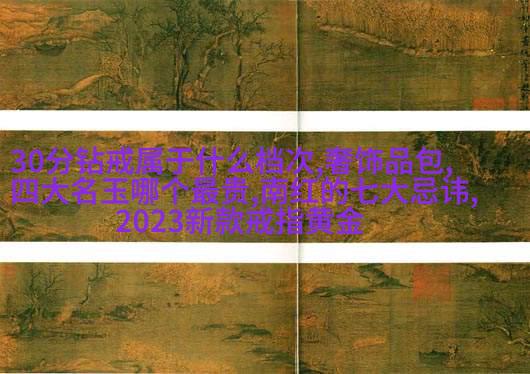 30分钻戒属于什么档次,奢饰品包,
四大名玉哪个最贵,南红的七大忌讳,
2023新款戒指黄金